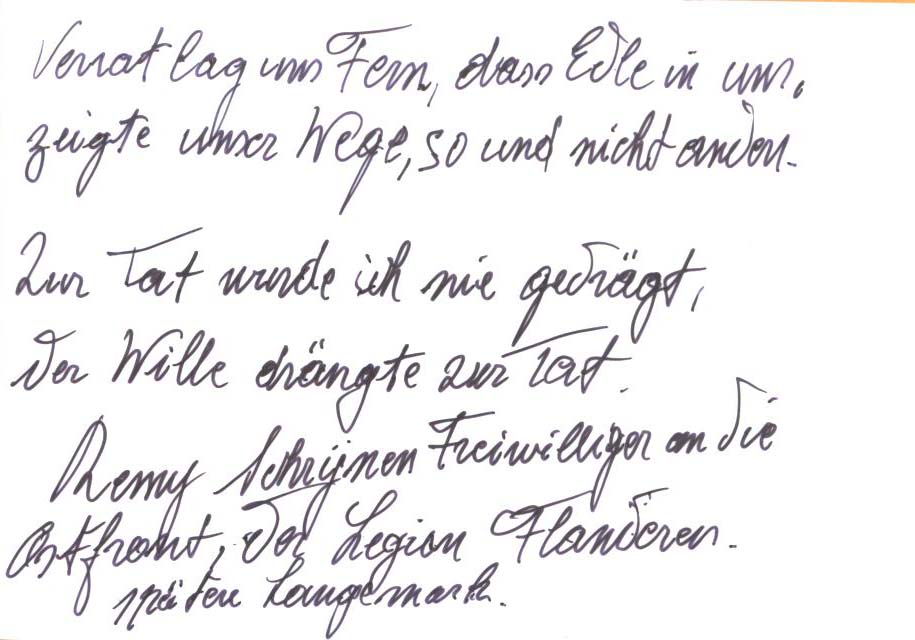 Verrat lag uns Fern, dass Edle in uns,
zeigte unser Wege, so und nicht anders.
Zur Tat wurde ich nie gedrägt,
der Wille drängte zur Tat.
Remy Schrijnen Freiwilliger an die
Ostfront, der Legion Flanderen.
später Langemark.